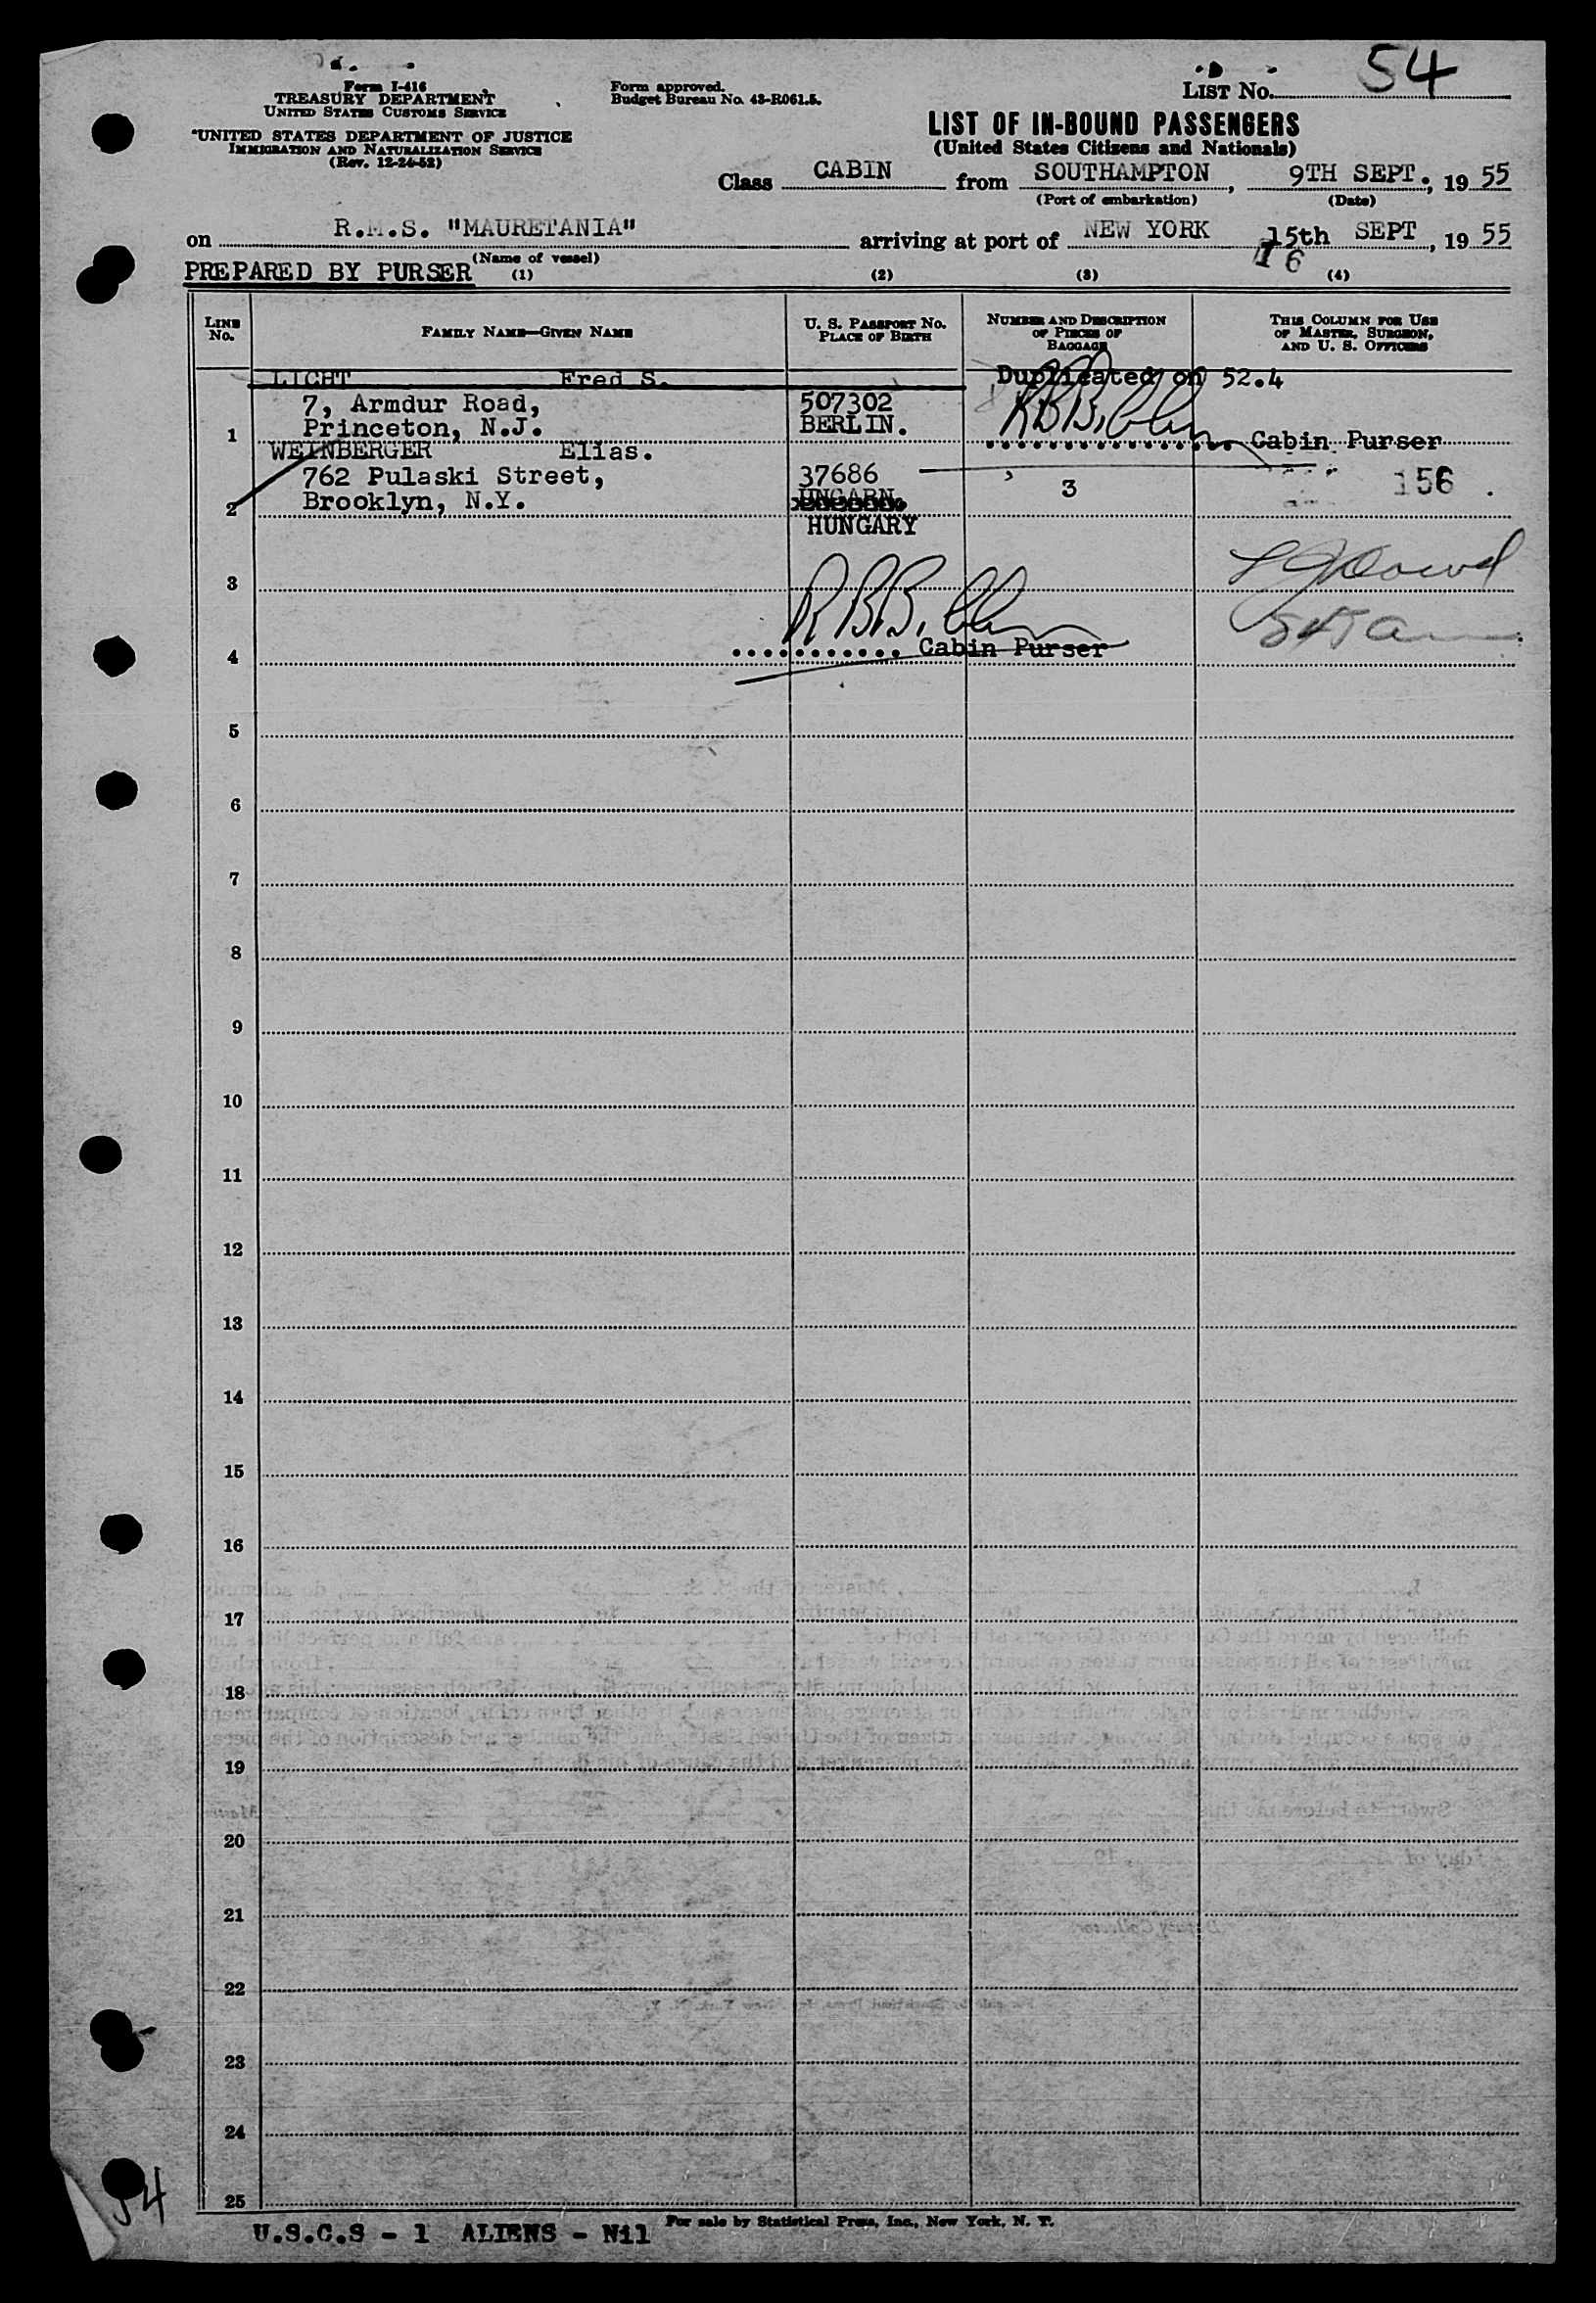 54
Form I-416
TREASURY DEPARTMENT
UNITED STATES CUSTOMS SERVICE
UNITED STATES DEPARTMENT OF JUSTICE
IMMIGRATION AND NATURALIZATION SERVICE
(Rev. 12-24-52)
Form approved.
Budget Bureau No. 43-R061.5.
LIST No.
LIST OF IN-BOUND PASSENGERS
(United States Citizens and Nationals)
Class CABIN from SOUTHAMPTON, 9TH SEPT., 19 55
(Port of embarkation) (Date)
on R.M.S. "MAURETANIA" arriving at port of NEW YORK 15th SEPT, 19 55
(Name of vessel) 16
PREPARED BY PURSER (1) (2) (3) (4)
LINE No. FAMILY NAME—GIVEN NAME U. S. PASSPORT No. PLACE OF BIRTH NUMBER AND DESCRIPTION OF PIECES OF BAGGAGE THIS COLUMN FOR USE OF MASTER, SURGEON, AND U. S. OFFICERS
LICHT Fred S. Duplicated on 52.4
7, Armdur Road, 507302
1 Princeton, N.J. BERLIN. Cabin Purser
WEINBERGER Elias.
762 Pulaski Street, 37686 3 156
2 Brooklyn, N.Y. UNGARN
HUNGARY
3
4 Cabin Purser
5
6
7
8
9
10
11
12
13
14
15
16
17
18
19
20
21
22
23
24
25
For sale by Statistical Press, Inc., New York, N. Y.
U.S.C.S - 1 ALIENS - Nil
54